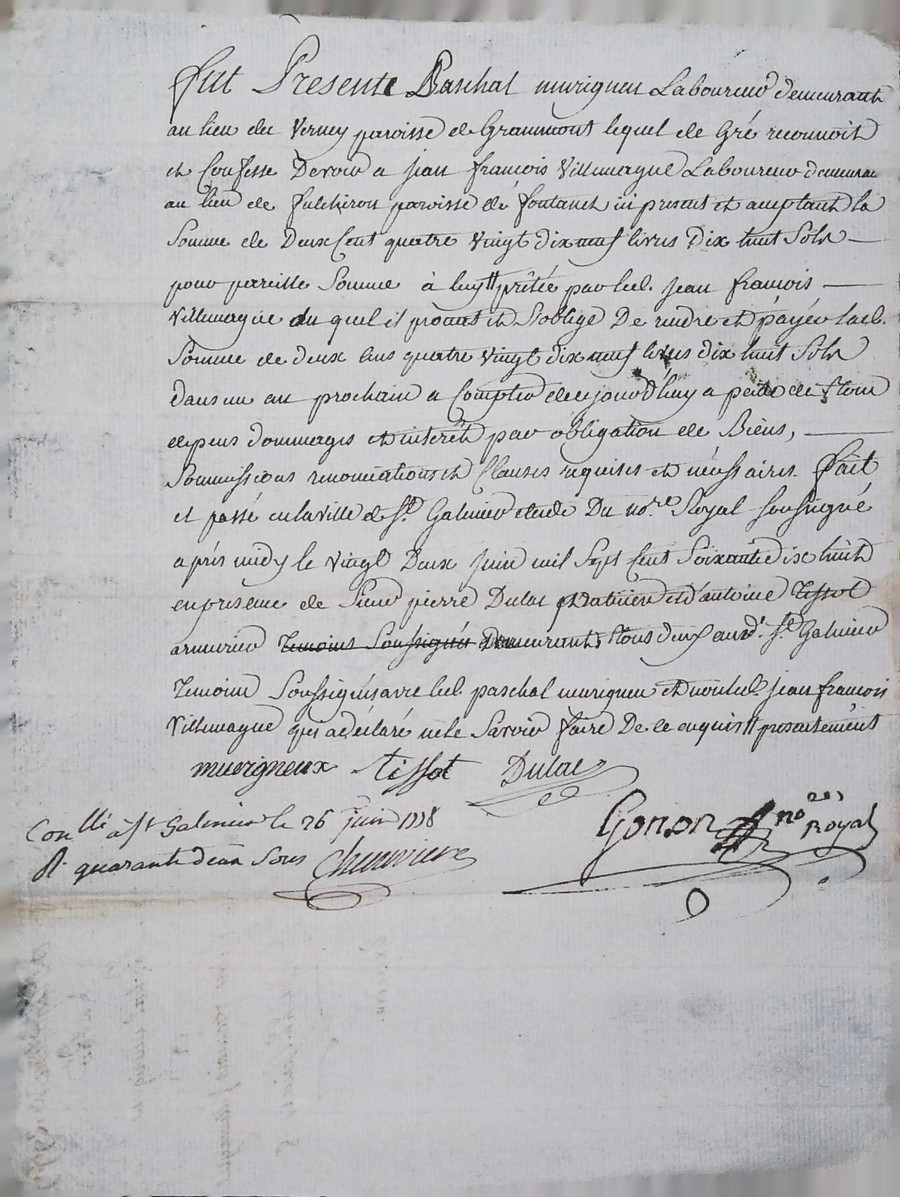 fut Présente Paschal murigneu Laboureur demeurant
au lieu du Verney paroisse de Grammont lequel de Gré reconnoit
et Confesse Devoir a jean françois Villemagne Laboureur demeurant
au lieu de fulchiron paroisse de fontanet ici present et acceptant la
Somme de Deux Cent quatre Vingt dix neuf livres Dix huit Sols
pour pareille Somme à luy prêtée par led. jean françois
Villemagne du quel il promet et S'oblige De rendre et payer lad.
Somme de deux Cens quatre Vingt dix neuf livres dix huit Sols
dans un an prochain a Compter de ce jourd'huy a peine de tous
depens dommages et interêt par obligation de Biens,
Soumissions renonciations et Clauses requises et nécessaires. fait
et passé en la ville de St. Galmier etude Du no.re Royal Soussigné
après midy le Vingt Deux juin mil Sept Cent Soixante dix huit
en presence de Sieur pierre Dulac praticien et d'antoine Tissot
armurier Temoins Soussignés Demeurants tous deux aud. St. Galmier
Temoins Soussignés avec led. paschal murigneu et non led. jean françois
Villemagne qui a déclaré ne le Savoir faire De ce enquis presentement
murigneux tissot Dulac
Gonon no.re Royal
Con.llé à St Galmier le 26 juin 1778
R. quarante deux Sous